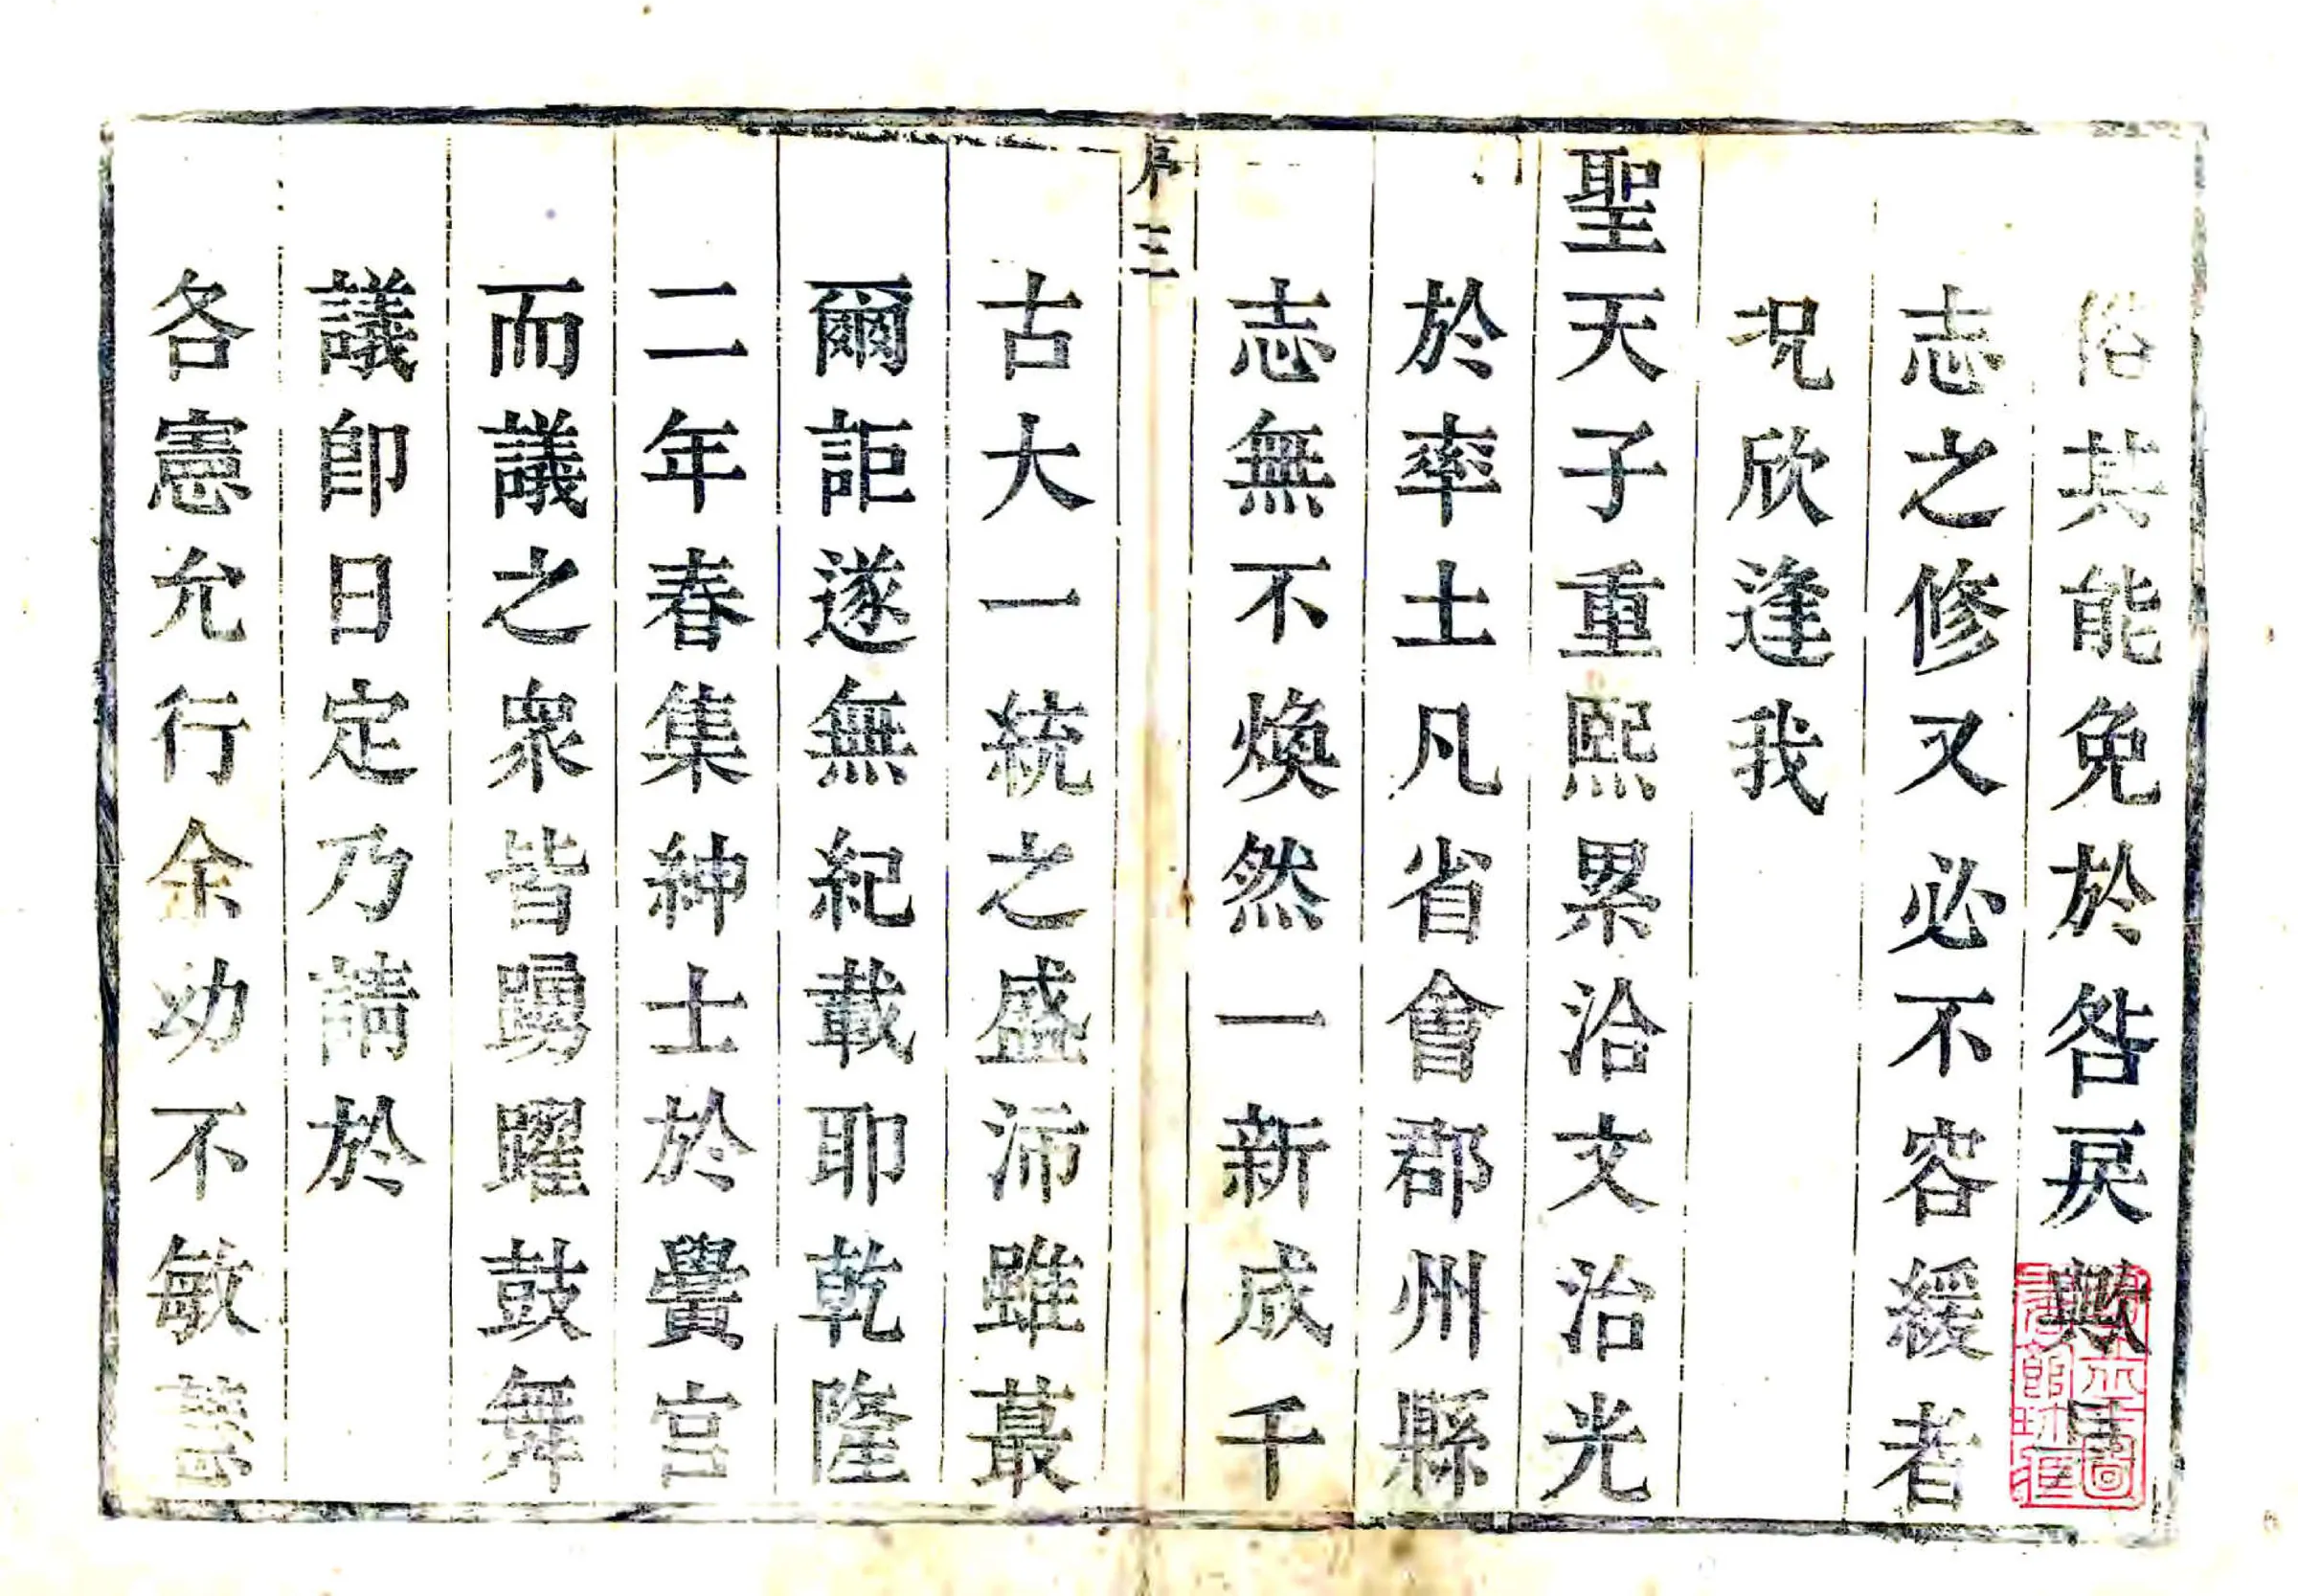 俗其能免於咎戾歟是
志之修又必不容緩者
況欣逢我
聖天子重熙累洽文治光
於率土凡省會郡州縣
志無不煥然一新咸千
序三
古大一統之盛沛雖蕞
爾詎遂無紀載耶乾隆
二年春集紳士於黌宮
而議之衆皆踴躍鼓舞
議卽日定乃請於
各憲允行余幼不敏